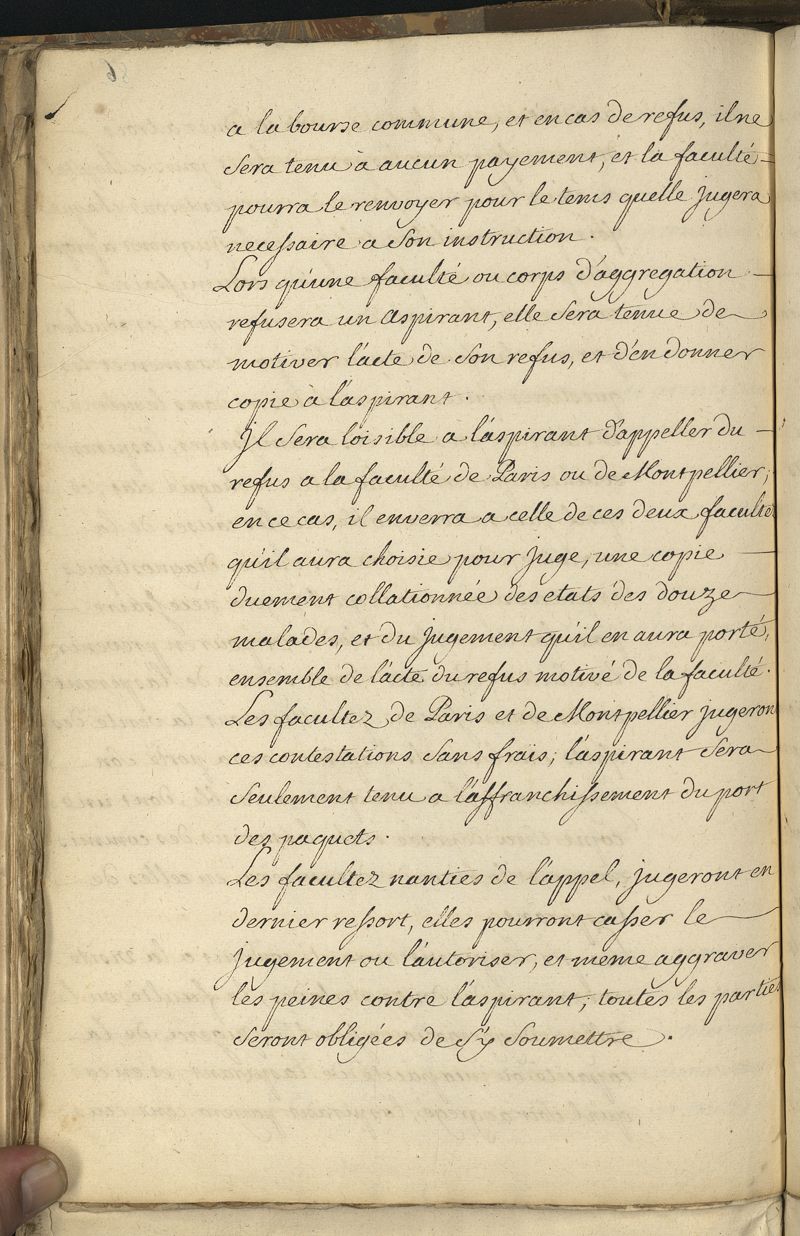 a la bourse commune, et en cas de refus, il ne
sera tenu à aucun payement, et la faculté
pourra le renvoyer pour le tems quelle jugera
necessaire a son instruction.
Lors qu'une faculté ou corps d'aggregation
refusera un aspirant, elle sera tenue de
motiver l'acte de son refus, et d'en donner
copie à l'aspirant.
Il sera loisible a l'aspirant d'appeller du
refus a la faculté de Paris ou de Montpellier;
en ce cas, il enverra a celle de ces deux facultés
qu'il aura choisie pour juge, une copie
duement collationnée des etats des douze
malades, et du jugement qu'il en aura porté,
ensemble de l'acte du refus motivé de la faculté.
Les facultez de Paris et de Montpellier jugeront
ces contestations sans frais; l'aspirant sera
seulement tenu a l'affranchissement du port
des paquets.
Les facultez nanties de l'appel, jugeront en
dernier ressort, elles pourront casser le
jugement ou l'autoriser, et même aggraver
les peines contre l'aspirant; toutes les parties
seront obligées de s'y soumettre.